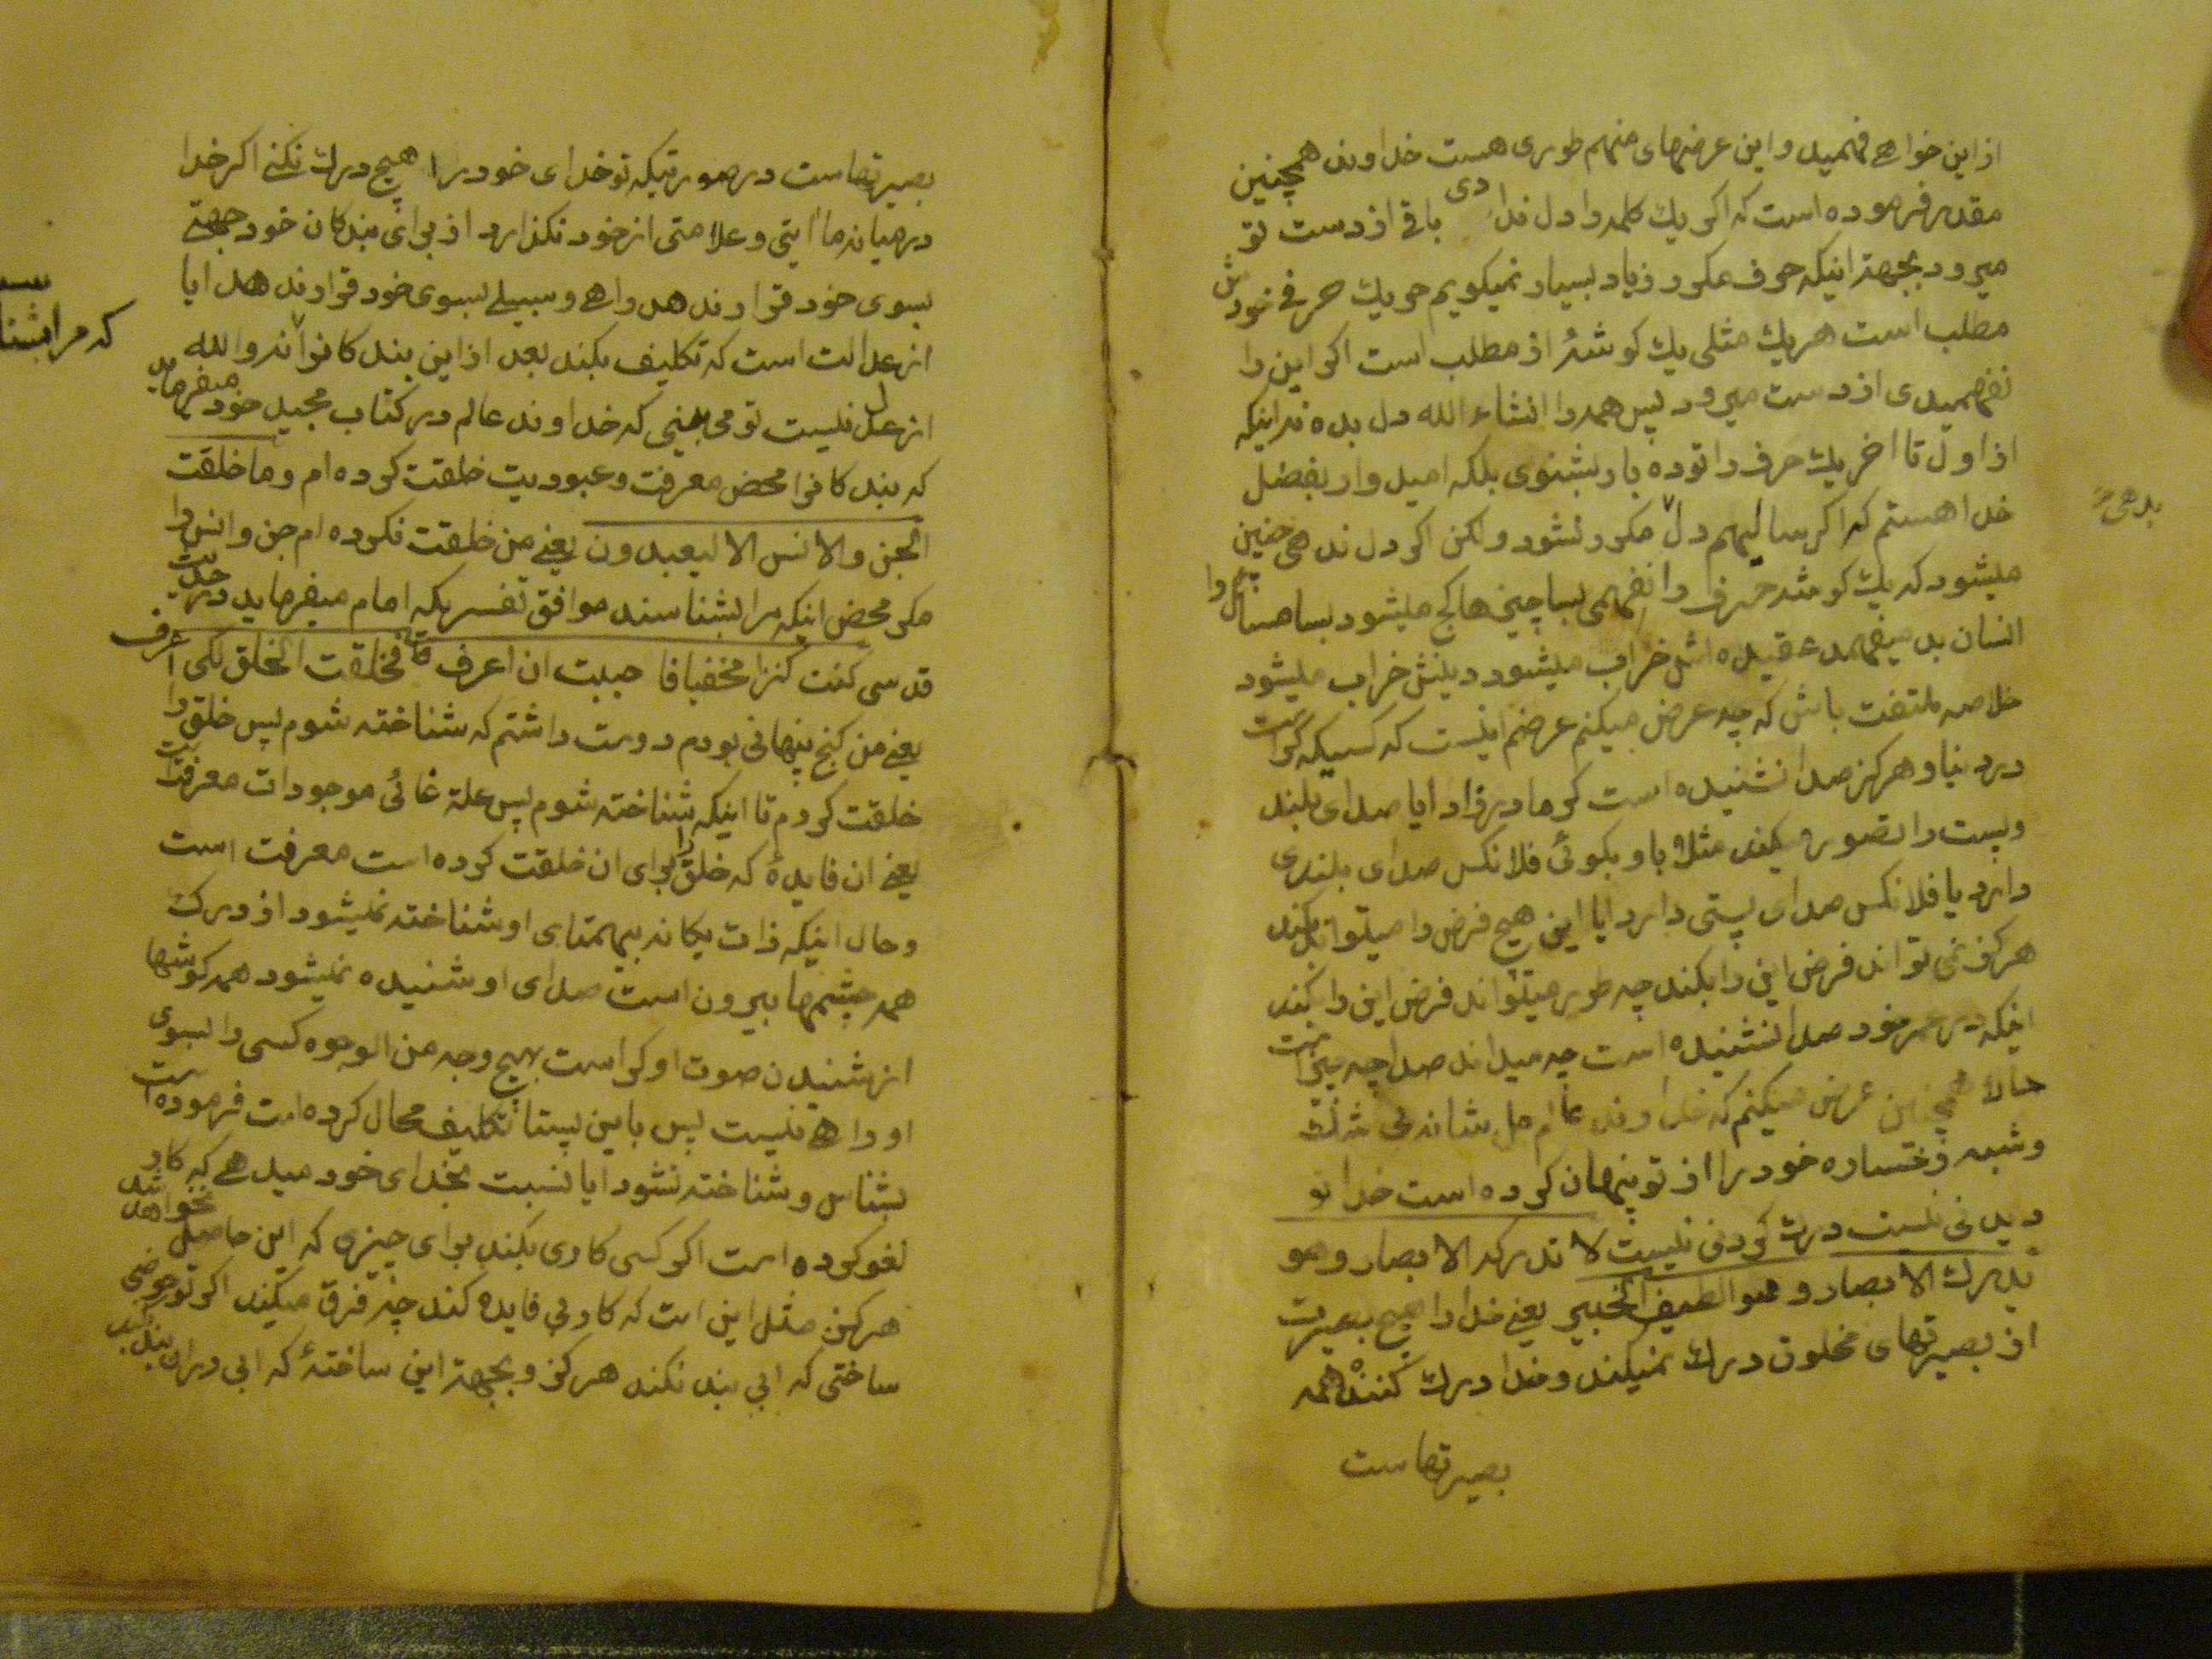 از این خواهے فهمید و این عرضهای منهم طوری هست خداوند همچنین
مقدر فرموده است که اکر یك کلمه را دل ندادی باقے از دست تو
میرود بجهة اینکه حرف مکرر زیاد بسیار نمیکویم هر یك حرفے خودش
مطلب است هر یك مثلی یك کوشهٔ از مطلب است اکر این را
نفهمیدی از دست میرود پس همه را انشاء الله دل بده نه اینکه
از اول تا اخر یك حرف را توده بار بشنوی بلکه امیدوار بفضل
خدا هستم که اکر سالیهم دل مکرر نشود ولکن اکر دل ندهی چنین
بدهی
میشود که یك کوشه حرف را نفهمی بسا چیزها کج میشود بسا مسائل را
انسان بد میفهمد عقیده اش خراب میشود دینش خراب میشود
خلاصه ملتفت باش که چه عرض میکنم عرضم اینست که کسیکه کر است
در دنیا و هرکز صدا نشنیده است کر مادرزاد ایا صدای بلند
و پست را تصور میکند مثلا باو بکوئی فلانکس صدای بلندی
دارد یا فلانکس صدای پستی دارد ایا این هیچ فرض را میتواند بکند
هرکز نمی تواند فرض این را بکند چه طور میتواند فرض این را بکند
اینکه در عمر خود صدا نشنیده است چه میداند صدا چه چیز است
حالا همچنین عرض میکنم که خداوند عالم جل شانه بی شك
و شبهه رخساره خود را از تو پنهان کرده است خدا تو
دیدنی نیست درك کردنی نیست لا تدرکه الابصار و هو
یدرك الابصار و هو اللطیف الخبیر یعنے خدا را هیچ بصیرت
از بصیرتهای مخلوق درك نمیکند و خدا درك کنندهٔ همه
بصیرتهاست
بصیرتهاست در صورتیکه تو خدای خود را هیچ درك نکنے اکر خدا
در میانه ما ایتی و علامتی از خود نکذارد از برای بندکان خود جهتے
بسوی خود قرار ندهد راهے و سبیلے بسوی خود قرار ندهد ایا
از عدالت است که تکلیف بکند بعد از این بندکانرا نه والله
که مرا بشنا
از عدل نیست تو می بینی که خداوند عالم در کتاب مجید خود میفرماید
که بندکانرا محض معرفت و عبودیت خلقت کرده ام و ما خلقت
الجن و الانس الا لیعبدون یعنے من خلقت نکرده ام جن و انس را
مکر محض اینکه مرا بشناسند موافق تفسریکه امام میفرماید در حدیث
قدسی کنت کنزا مخفیا فا حببت ان اعرف فخلقت الخلق لکی اعرف
یعنے من کنج پنهانی بودم دوست داشتم که شناخته شوم پس خلق را
خلقت کردم تا اینکه شناخته شوم پس علة غائی موجودات معرفت است
یعنے ان فایدهٔ که خلق را برای ان خلقت کرده است معرفت است
و حال اینکه ذات یکانه بیهمتای او شناخته نمیشود از درك
همه چشمها بیرون است صدای او شنیده نمیشود همه کوشها
از شنیدن صوت او کر است بهیچ وجه من الوجوه کسی را بسوی
او راهے نیست پس باین پستا تکلیف محال کرده است فرموده است
بشناس و شناخته نشود ایا نسبت بخدای خود میدهے که کار
لغو کرده است اکر کسی کاری بکند برای چیزی که این حاصل نخواهد شد
هرکز مثل این است که کار بی فایده کند چه فرق میکند اکر تو حوضی
ساختی که ابی بند نکند هرکز و بجهة این ساختهٔ که ابی در ان بند کند